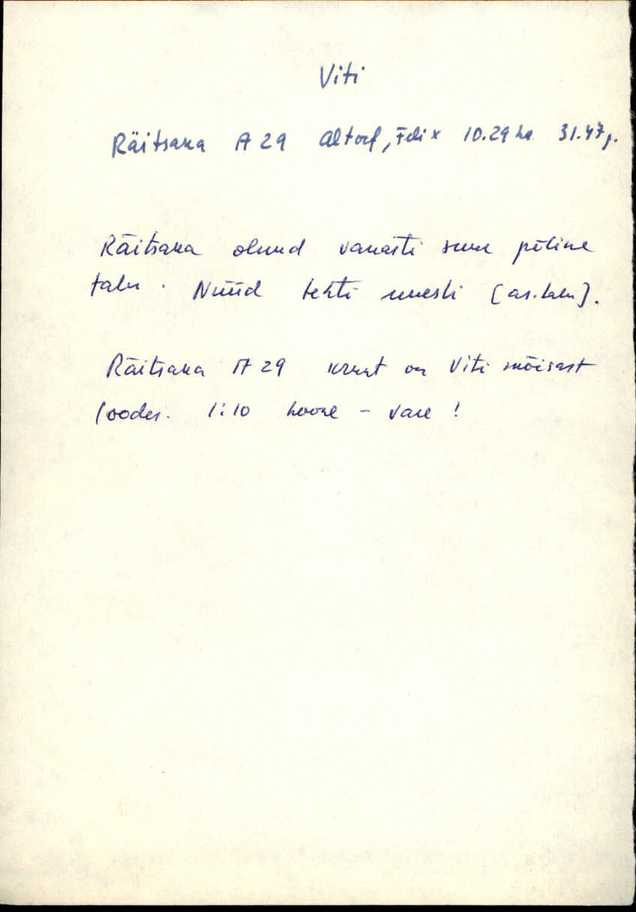 Viti
Räitsaka A 29 Altorf, Felix 10.29 ha 31.47 p.
Räitsaka olnud vanasti suur põline
talu. Nüüd tehti uuesti [as. talu].
Räitsaka A 29 krunt on Viti mõisast
loodes. 1:10 hoone - vare!